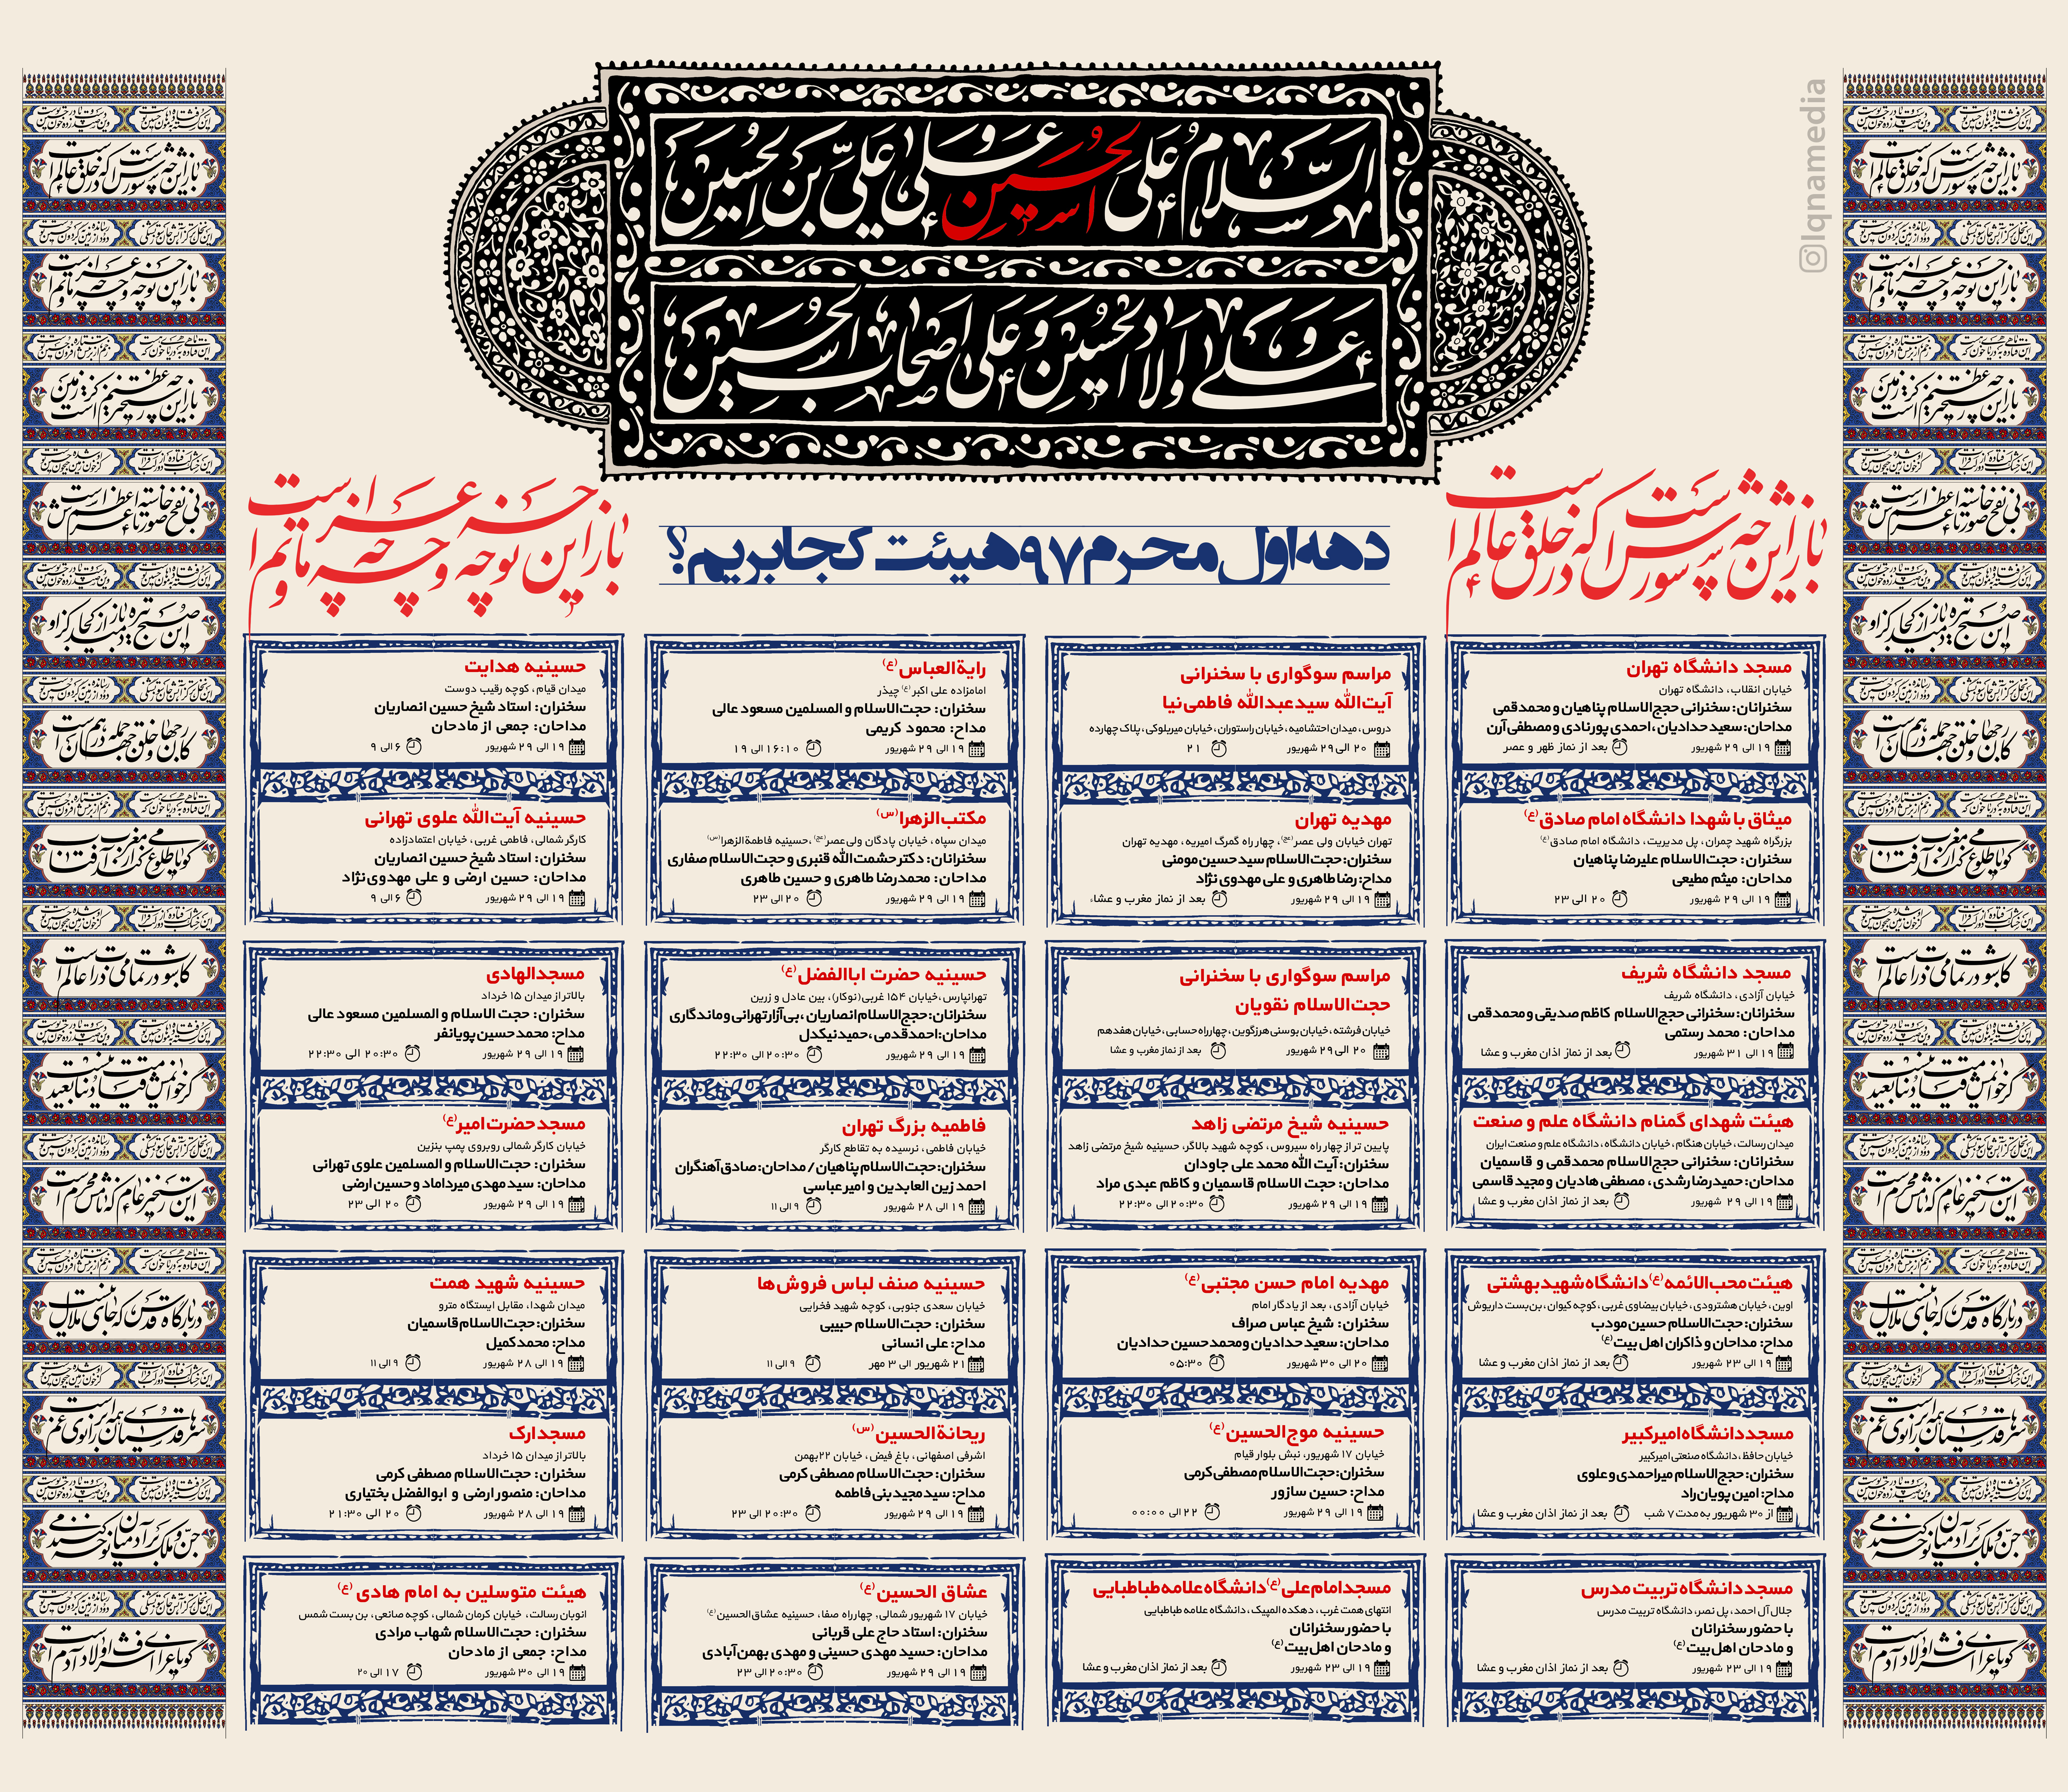 السلام علی الحسین و علی علی بن الحسین
و علی اولاد الحسین و علی اصحاب الحسین
Iqnamedia
باز این چه شورش است که در خلق عالم است
باز این چه نوحه و چه عزا و چه ماتم است
دهه اول محرم ۹۷ هیئت کجا بریم؟
مسجد دانشگاه تهران
خیابان انقلاب، دانشگاه تهران
سخنرانان: سخنرانی حجج‌الاسلام پناهیان و محمدقمی
مداحان: سعید حدادیان، احمدی پورنادی و مصطفی آرن
۱۹ الی ۲۹ شهریور
بعد از نماز ظهر و عصر
میثاق با شهدا دانشگاه امام صادق(ع)
بزرگراه شهید چمران، پل مدیریت، دانشگاه امام صادق(ع)
سخنران: حجت‌الاسلام علیرضا پناهیان
مداحان: میثم مطیعی
۱۹ الی ۲۹ شهریور
۲۰ الی ۲۳
مراسم سوگواری با سخنرانی
آیت‌الله سیدعبدالله فاطمی‌نیا
دروس، میدان احتشامیه، خیابان راستوران، خیابان میربلوکی، پلاک چهارده
۲۰ الی ۲۹ شهریور
۲۱
مهدیه تهران
تهران خیابان ولی عصر(عج)، چهار راه گمرگ امیریه، مهدیه تهران
سخنران: حجت‌الاسلام سیدحسین مومنی
مداح: رضا طاهری و علی مهدوی نژاد
۱۹ الی ۲۹ شهریور
بعد از نماز مغرب و عشاء
رایة‌العباس(ع)
امامزاده علی اکبر(ع) چیذر
سخنران: حجت‌الاسلام و المسلمین مسعود عالی
مداح: محمود کریمی
۱۹ الی ۲۹ شهریور
۱۶:۱۰ الی ۱۹
مکتب‌الزهرا(س)
میدان سپاه، خیابان پادگان ولی‌عصر(عج)، حسینیه فاطمة‌الزهرا(س)
سخنرانان: دکتر حشمت‌الله قنبری و حجت‌الاسلام صفاری
مداحان: محمدرضا طاهری و حسین طاهری
۱۹ الی ۲۹ شهریور
۲۰ الی ۲۳
حسینیه هدایت
میدان قیام، کوچه رقیب دوست
سخنران: استاد شیخ حسین انصاریان
مداحان: جمعی از مادحان
۱۹ الی ۲۹ شهریور
۶ الی ۹
حسینیه آیت‌الله علوی تهرانی
کارگر شمالی، فاطمی غربی، خیابان اعتمادزاده
سخنران: استاد شیخ حسین انصاریان
مداحان: حسین ارضی و علی مهدوی‌نژاد
۱۹ الی ۲۹ شهریور
۶ الی ۹
مسجد دانشگاه شریف
خیابان آزادی، دانشگاه شریف
سخنرانان: سخنرانی حجج‌الاسلام کاظم صدیقی و محمدقمی
مداحان: محمد رستمی
۱۹ الی ۳۱ شهریور
بعد از نماز اذان مغرب و عشا
هیئت شهدای گمنام دانشگاه علم و صنعت
میدان رسالت، خیابان هنگام، خیابان دانشگاه، دانشگاه علم و صنعت ایران
سخنرانان: سخنرانی حجج‌الاسلام محمدقمی و قاسمیان
مداحان: حمیدرضا رشدی، مصطفی هادیان و مجید قاسمی
۱۹ الی ۲۹ شهریور
بعد از نماز اذان مغرب و عشا
مراسم سوگواری با سخنرانی
حجت‌الاسلام نقویان
خیابان فرشته، خیابان بوسنی هرزگوین، چهارراه حسابی، خیابان هفدهم
۲۰ الی ۲۹ شهریور
بعد از نماز مغرب و عشا
حسینیه شیخ مرتضی زاهد
پایین تر از چهار راه سیروس، کوچه شهید بالاگر، حسینیه شیخ مرتضی زاهد
سخنران: آیت الله محمد علی جاودان
مداحان: حجت الاسلام قاسمیان و کاظم عبدی مراد
۱۹ الی ۲۹ شهریور
۲۰:۳۰ الی ۲۲:۳۰
حسینیه حضرت اباالفضل(ع)
تهرانپارس، خیابان ۱۵۴ غربی(نوکار)، بین عادل و زرین
سخنرانان: حجج‌الاسلام انصاریان، بی‌آزار تهرانی و ماندگاری
مداحان: احمدقدمی، حمیدنیکدل
۱۹ الی ۲۹ شهریور
۲۰:۳۰ الی ۲۲:۳۰
فاطمیه بزرگ تهران
خیابان فاطمی، نرسیده به تقاطع کارگر
سخنران: حجت‌الاسلام پناهیان / مداحان: صادق آهنگران
احمد زین العابدین و امیر عباسی
۱۹ الی ۲۸ شهریور
۹ الی ۱۱
مسجدالهادی
بالاتر از میدان ۱۵ خرداد
سخنران: حجت الاسلام و المسلمین مسعود عالی
مداح: محمدحسین پویانفر
۱۹ الی ۲۹ شهریور
۲۰:۳۰ الی ۲۲:۳۰
مسجدحضرت امیر(ع)
خیابان کارگر شمالی روبروی پمپ بنزین
سخنران: حجت‌الاسلام و المسلمین علوی تهرانی
مداحان: سید مهدی میرداماد و حسین ارضی
۱۹ الی ۲۹ شهریور
۲۰ الی ۲۳
هیئت محب‌الائمه(ع) دانشگاه شهید بهشتی
اوین، خیابان هشترودی، خیابان بیضاوی غربی، کوچه کیوان، بن‌بست داریوش
سخنران: حجت‌الاسلام حسین مودب
مداح: مداحان و ذاکران اهل بیت(ع)
۱۹ الی ۲۳ شهریور
بعد از نماز اذان مغرب و عشا
مسجد دانشگاه امیرکبیر
خیابان حافظ، دانشگاه صنعتی امیرکبیر
سخنران: حجج‌الاسلام میراحمدی و علوی
مداح: امین پویان‌راد
از ۳۰ شهریور به مدت ۷ شب
بعد از نماز اذان مغرب و عشا
مهدیه امام حسن مجتبی(ع)
خیابان آزادی، بعد از یادگار امام
سخنران: شیخ عباس صراف
مداحان: سعید حدادیان و محمدحسین حدادیان
۲۰ الی ۳۰ شهریور
۰۵:۳۰
حسینیه موج‌الحسین(ع)
خیابان ۱۷ شهریور، نبش بلوار قیام
سخنران: حجت‌الاسلام مصطفی کرمی
مداح: حسین سازور
۱۹ الی ۲۹ شهریور
۲۲ الی ۰۰:۰۰
حسینیه صنف لباس فروش‌ها
خیابان سعدی جنوبی، کوچه شهید فخرایی
سخنران: حجت‌الاسلام حبیبی
مداح: علی انسانی
۲۱ شهریور الی ۳ مهر
۹ الی ۱۱
ریحانة‌الحسین(س)
اشرفی اصفهانی، باغ فیض، خیابان ۲۲بهمن
سخنران: حجت‌الاسلام مصطفی کرمی
مداح: سیدمجیدبنی‌فاطمه
۱۹ الی ۲۹ شهریور
۲۰:۳۰ الی ۲۳
حسینیه شهید همت
میدان شهدا، مقابل ایستگاه مترو
سخنران: حجت‌الاسلام قاسمیان
مداح: محمدکمیل
۱۹ الی ۲۸ شهریور
۹ الی ۱۱
مسجدارک
بالاتر از میدان ۱۵ خرداد
سخنران: حجت‌الاسلام مصطفی کرمی
مداحان: منصور ارضی و ابوالفضل بختیاری
۱۹ الی ۲۸ شهریور
۲۰ الی ۲۱:۳۰
مسجد دانشگاه تربیت مدرس
جلال آل احمد، پل نصر، دانشگاه تربیت مدرس
با حضور سخنرانان
و مادحان اهل بیت(ع)
۱۹ الی ۲۳ شهریور
بعد از نماز اذان مغرب و عشا
مسجد امام علی(ع) دانشگاه علامه طباطبایی
انتهای همت غرب، دهکده المپیک، دانشگاه علامه طباطبایی
با حضور سخنرانان
و مادحان اهل بیت(ع)
۱۹ الی ۲۳ شهریور
بعد از نماز اذان مغرب و عشا
عشاق الحسین(ع)
خیابان ۱۷ شهریور شمالی، چهارراه صفا، حسینیه عشاق‌الحسین(ع)
سخنران: استاد حاج علی قربانی
مداحان: حسید مهدی حسینی و مهدی بهمن‌آبادی
۱۹ الی ۲۹ شهریور
۲۰:۳۰ الی ۲۳
هیئت متوسلین به امام هادی(ع)
اتوبان رسالت، خیابان کرمان شمالی، کوچه صانعی، بن بست شمس
سخنران: حجت‌الاسلام شهاب مرادی
مداح: جمعی از مادحان
۱۹ الی ۳۰ شهریور
۱۷ الی ۲۰